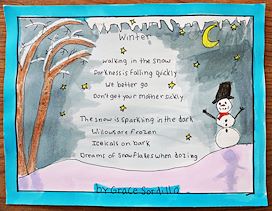 Winter
Walking in the snow
Darkness is falling quickly
We better go
Don't get your mother sickly
The snow is sparkling in the dark
Willows are frozen
Icicals on bark
Dreams of snowflakes when dozing
by Grace Sordillo